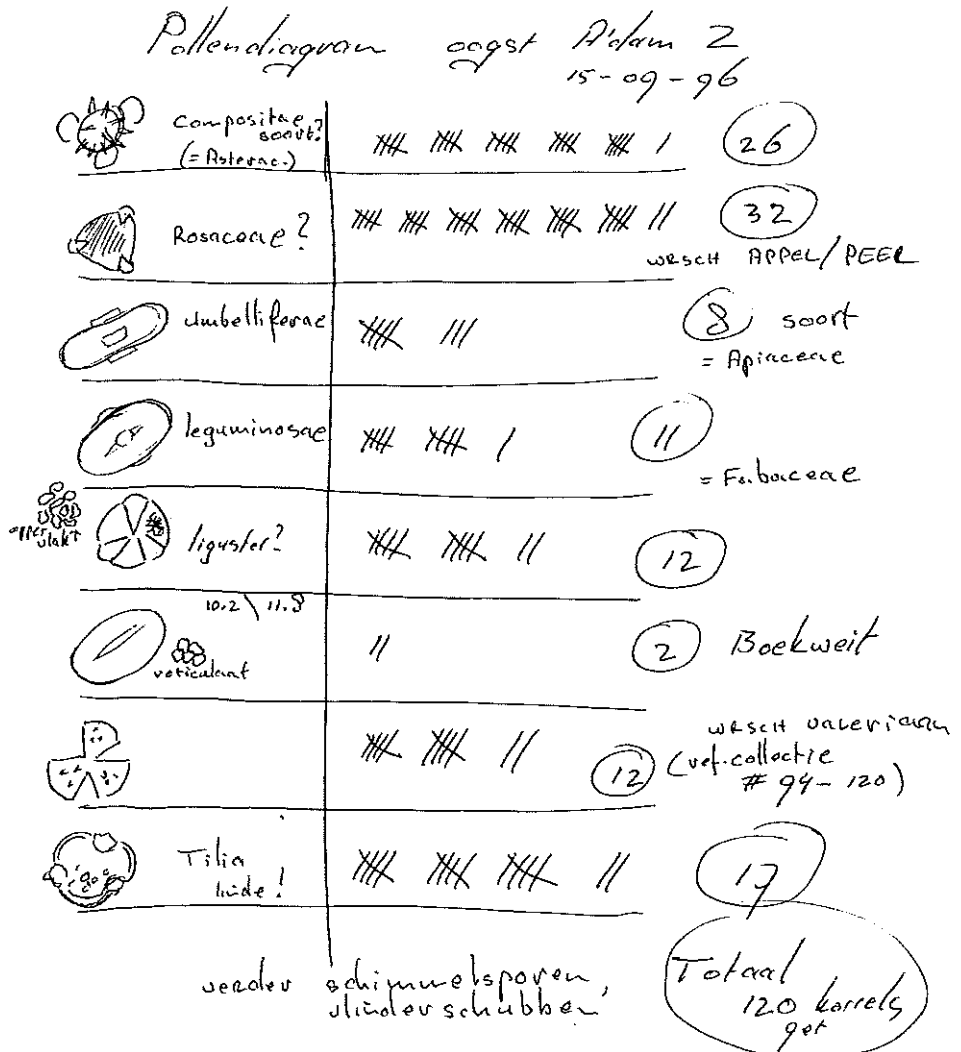 Pollendiagram oogst A'dam 2
15-09-96
Compositae soort?
(= Asterac.)
26
Rosaceae?
32
WRSCH APPEL/PEER
Umbelliferae
8 soort
= Apiaceae
leguminosae
11
= Fabaceae
opper
vlakt
liguster?
12
10.2 \ 11.8
reticulaat
2 Boekweit
WRSCH valeriaan
12 (ref. collectie
# 94-120)
Tilia
linde!
17
verder schimmelsporen,
vlinderschubben
Totaal
120 korrels
get